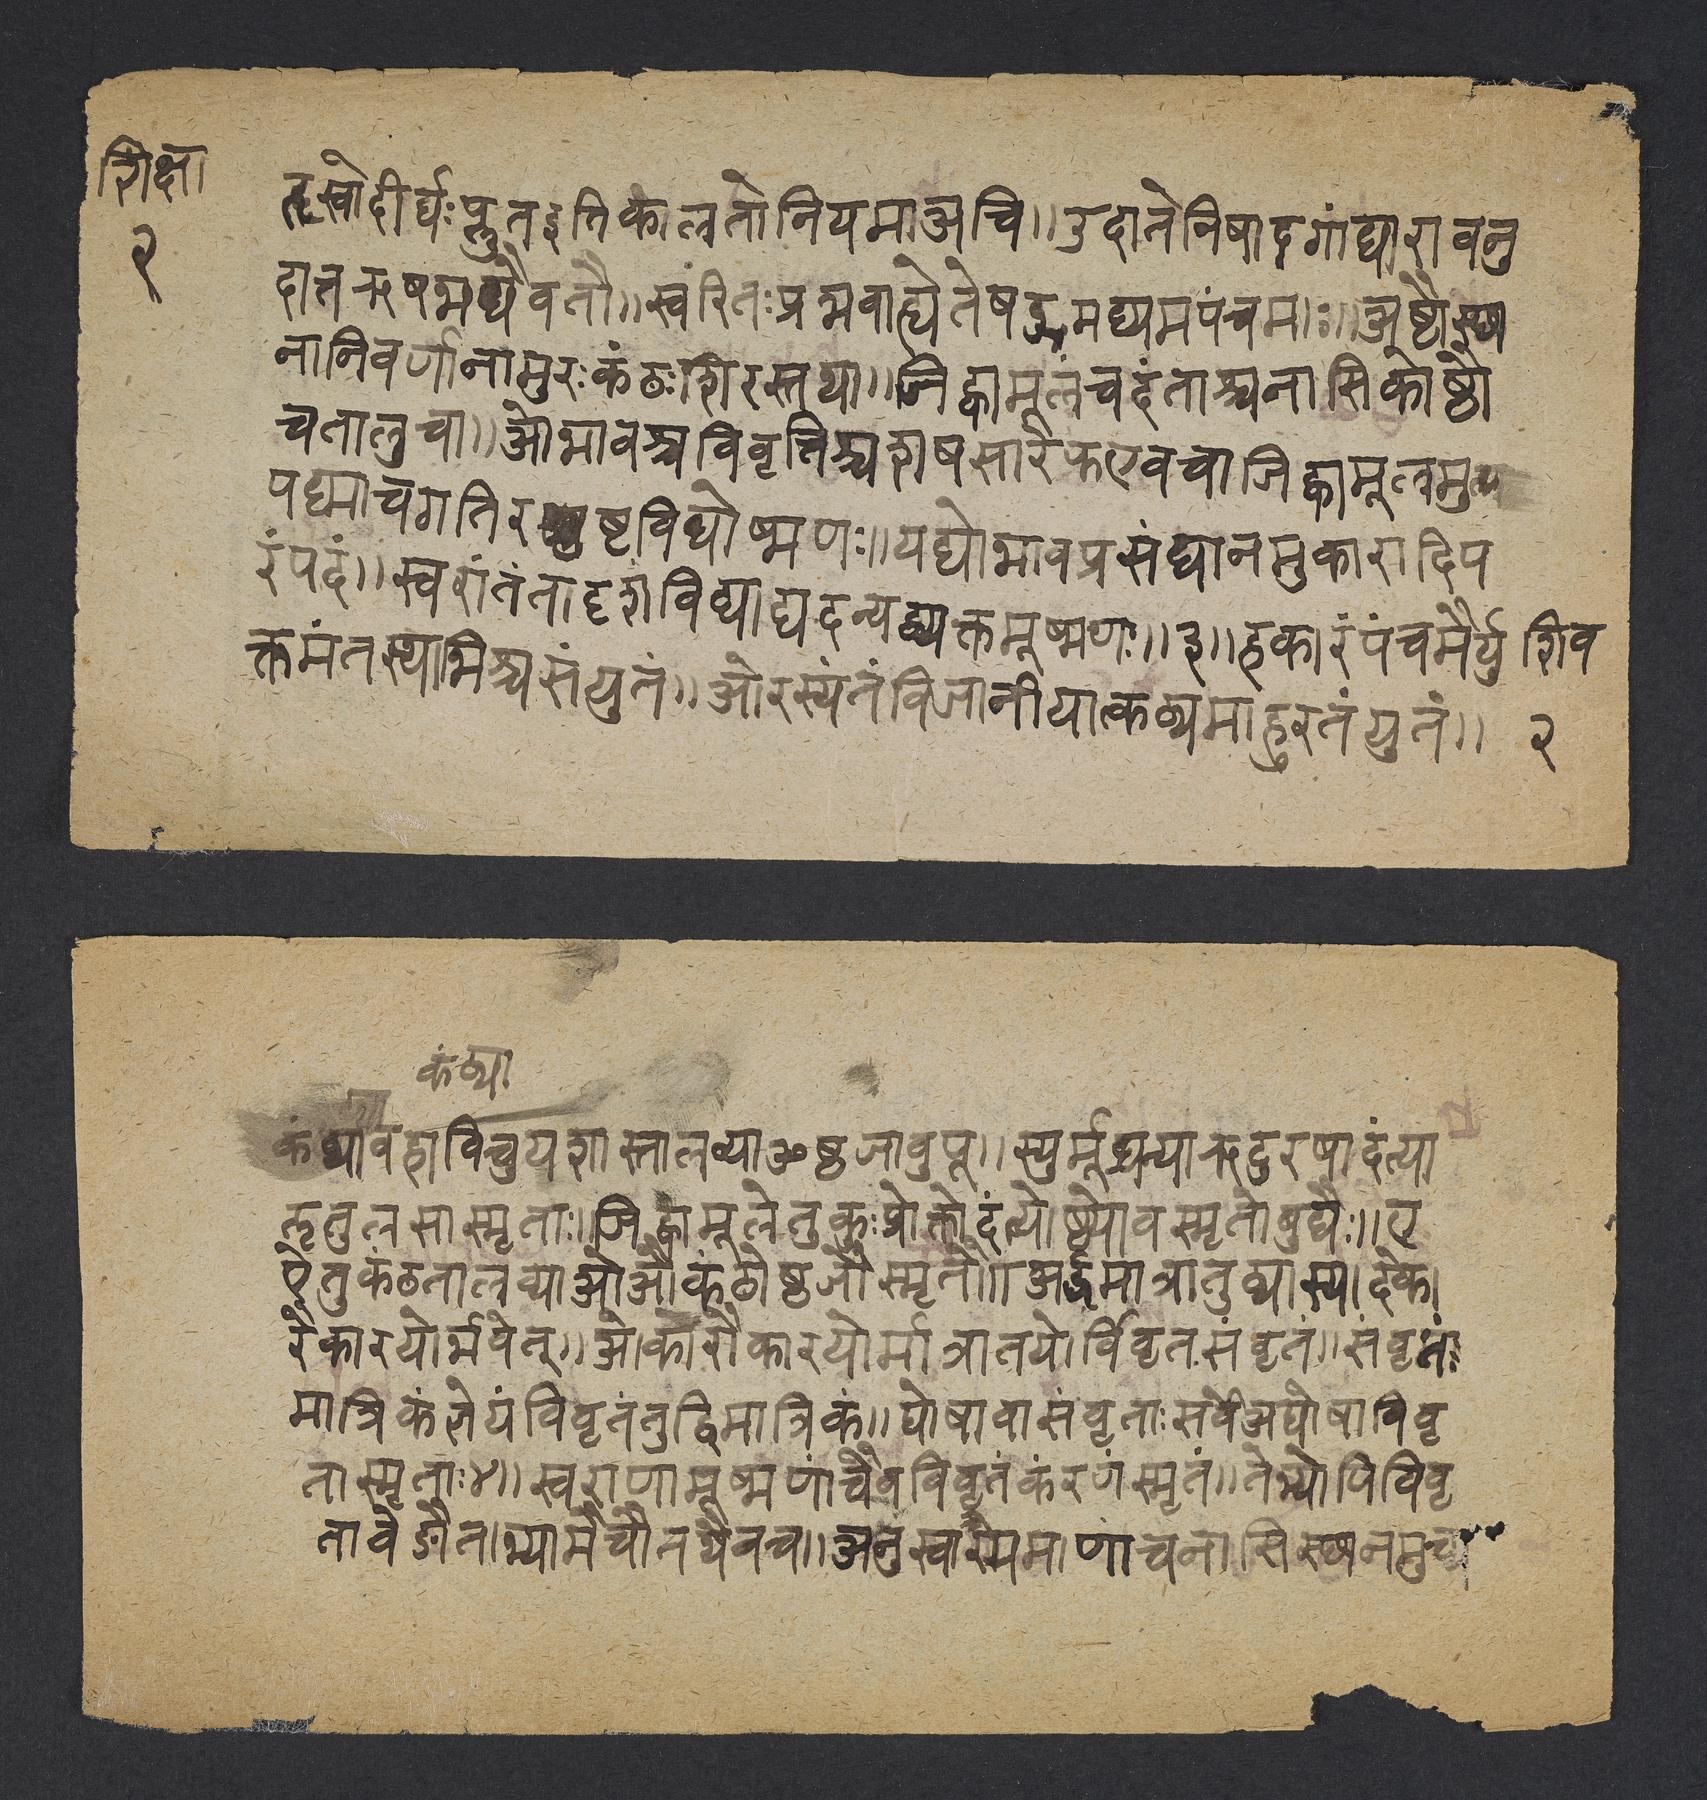 शिक्षा
२
ह्रस्वोदीर्घःप्लुतइतिकालतोनियमाअचि॥उदात्तेनिषादगांधारावनु
दात्तऋषभधैवतौ॥स्वरितःप्रभवाह्येतेषड्जमध्यमपंचमाः॥अष्टौस्था
नानिवर्णानामुरःकंठःशिरस्तथा॥जिह्वामूलंचदंताश्चनासिकोष्ठौ
चतालुचा॥ओभावश्चविवृत्तिश्चशषसारेफएवचाजिह्वामूलमुप
पध्माचगतिरष्टविधोष्मणः॥यद्योभावप्रसंधानमुकारादिप
रंपदं॥स्वरांतंतादृशंविद्याद्यदन्यद्व्यक्तमूष्मणः॥३॥हकारंपंचमैर्यु
क्तमंतस्थाभिश्चसंयुतं॥ओरस्यंतंविजानीयात्कठ्यमाहुरतंयुतं॥
शिव
२
कंठ्या
कंथावहाविचुयशास्तालव्याओष्ठजावुपू॥स्युर्मूर्धन्याऋटुरषादंत्या
लृतुलसास्मृताः॥जिह्वामूलेतुकुःप्रोक्तोदंत्योष्ठ्योवस्मृतोबुधैः॥ए
ऐतुकंठतालव्याओऔकंठोष्ठजौस्मृतौ॥अर्द्धमात्रातुव्यास्यादेका
रैकारयोर्भवेत्॥ओकारौकारयोर्मात्रातयोर्विवृतसंवृतं॥संवृतं
मात्रिकंज्ञेयंविवृतंतुद्विमात्रिकं॥घोषावासंवृताःसर्वेअघोषाविवृ
तास्मृताः४॥स्वराणामूष्मणांचैवविवृतंकंरणंस्मृतं॥तेभ्योपिविवृ
तावेङौताभ्यामैचौतथैवच॥अनुस्वारयमाणांचनासिस्थानमुच